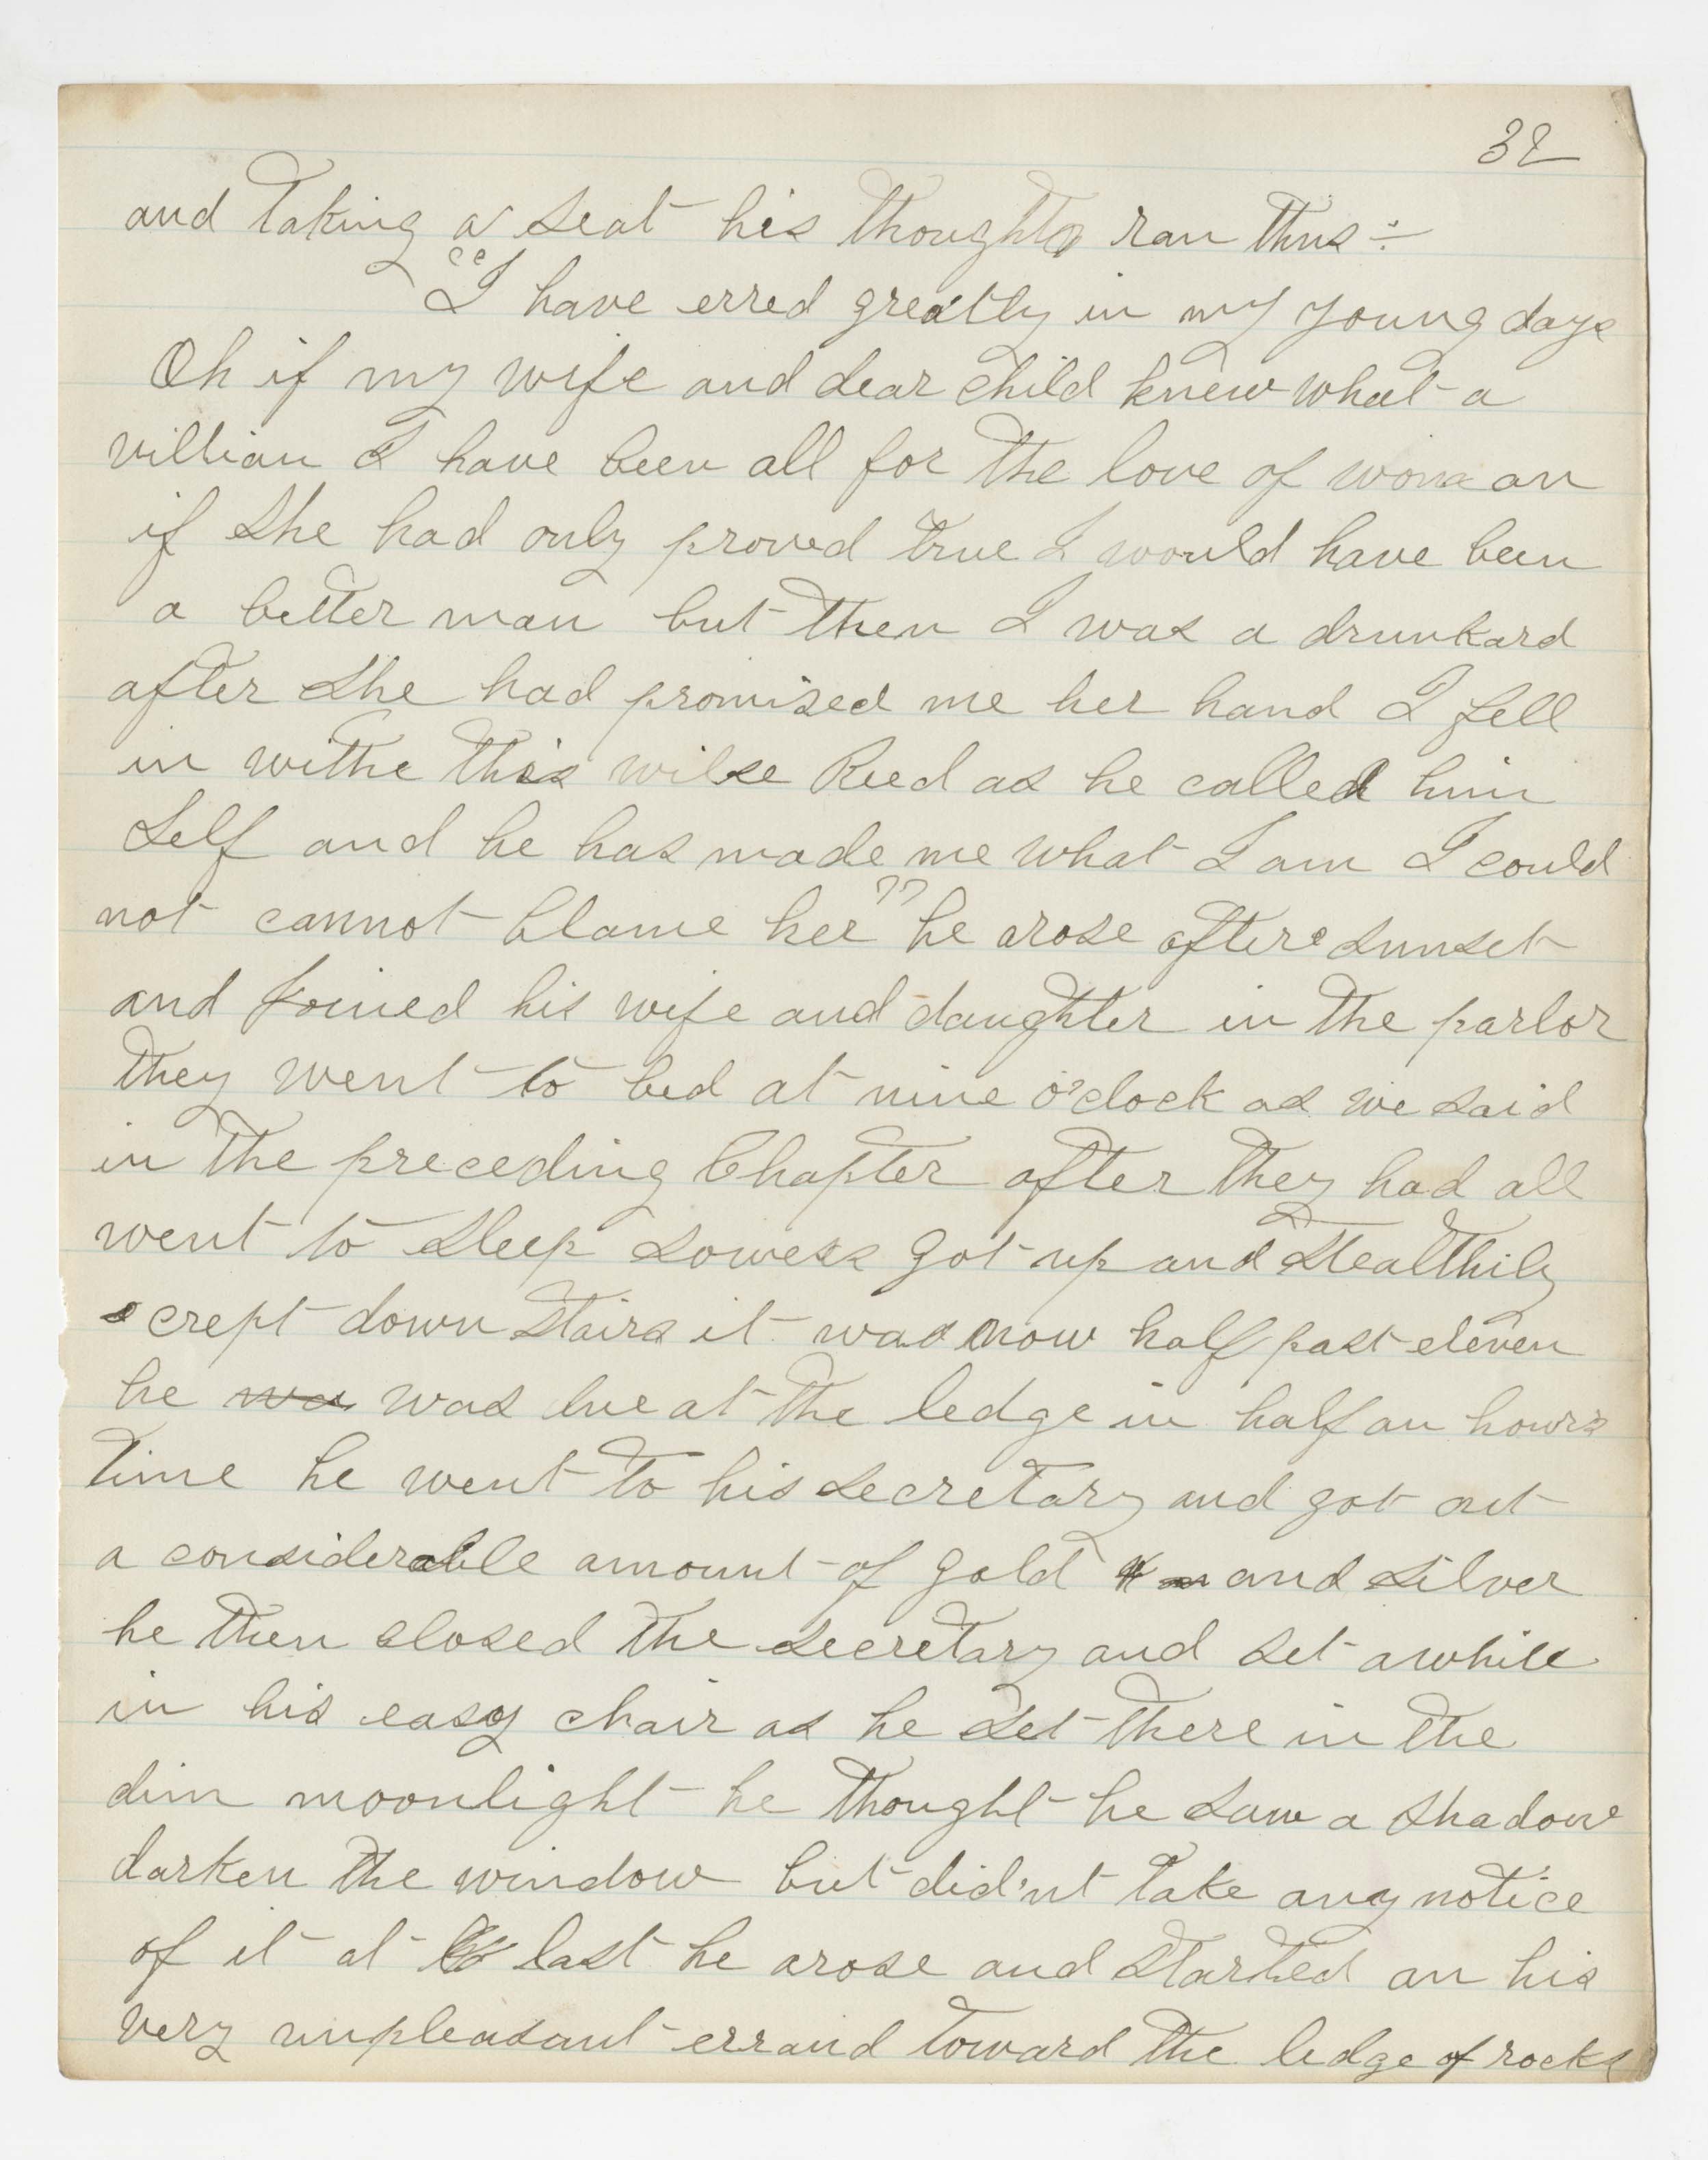 32
and taking a seat his thoughts ran thus:-
"I have erred greatly in my young days
Oh if my wife and dear child knew what a
villian I have been all for the love of woman
if she had only proved true I would have been
a better man but then I was a drunkard
after she had promised me her hand I fell
in withe this wilse Reed as he called him
self and he has made me what I am I could
not cannot blame her" he arose after sunset
and joined his wife and daughter in the parlor
they went to bed at nine o'clock as we said
in the preceding Chapter after they had all
went to sleep Sowers got up and stealthily
crept down stairs it was now half past eleven
he wa was due at the ledge in half an hours
time he went to his secretary and got out
a considerable amount of gold and silver
he then closed the secretary and set awhile
in his easy chair as he set there in the
dim moonlight he thought he saw a shadow
darken the window but did'nt take any notice
of it at last he arose and started an his
very unpleasant errand toward the ledge of rocks